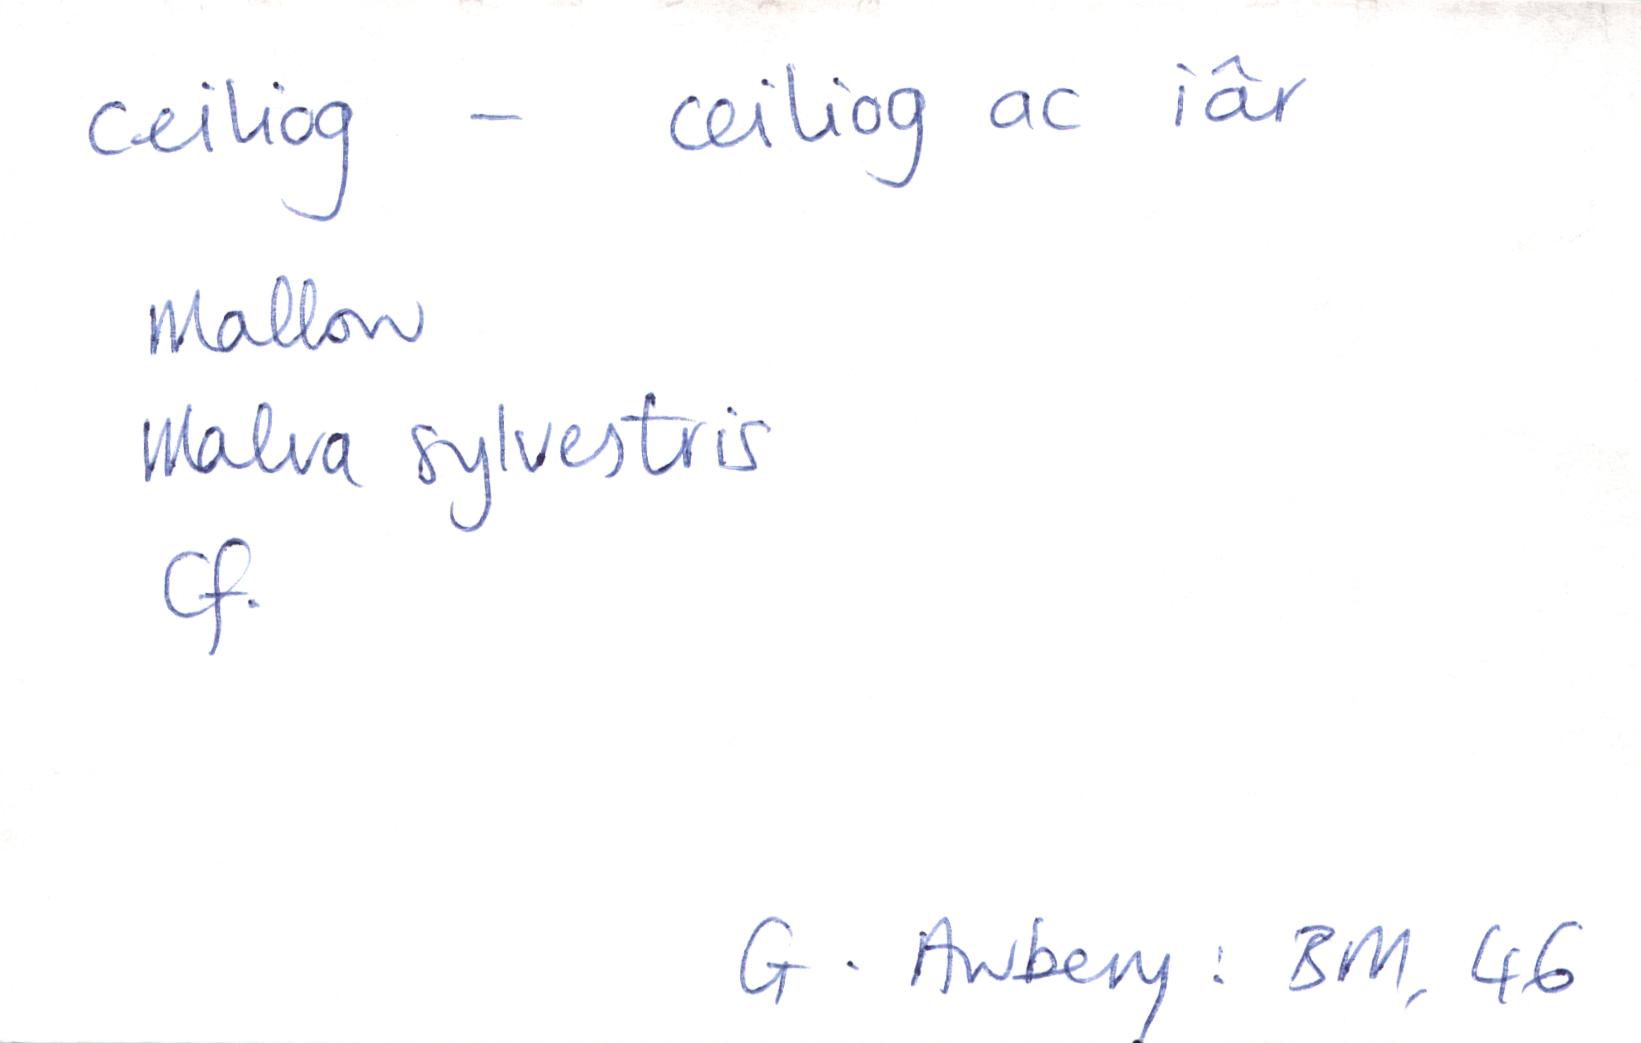 ceiliog - ceiliog ac iâr
Mallow
Malva sylvestris
Cf.
G. Awbery: BM, 46